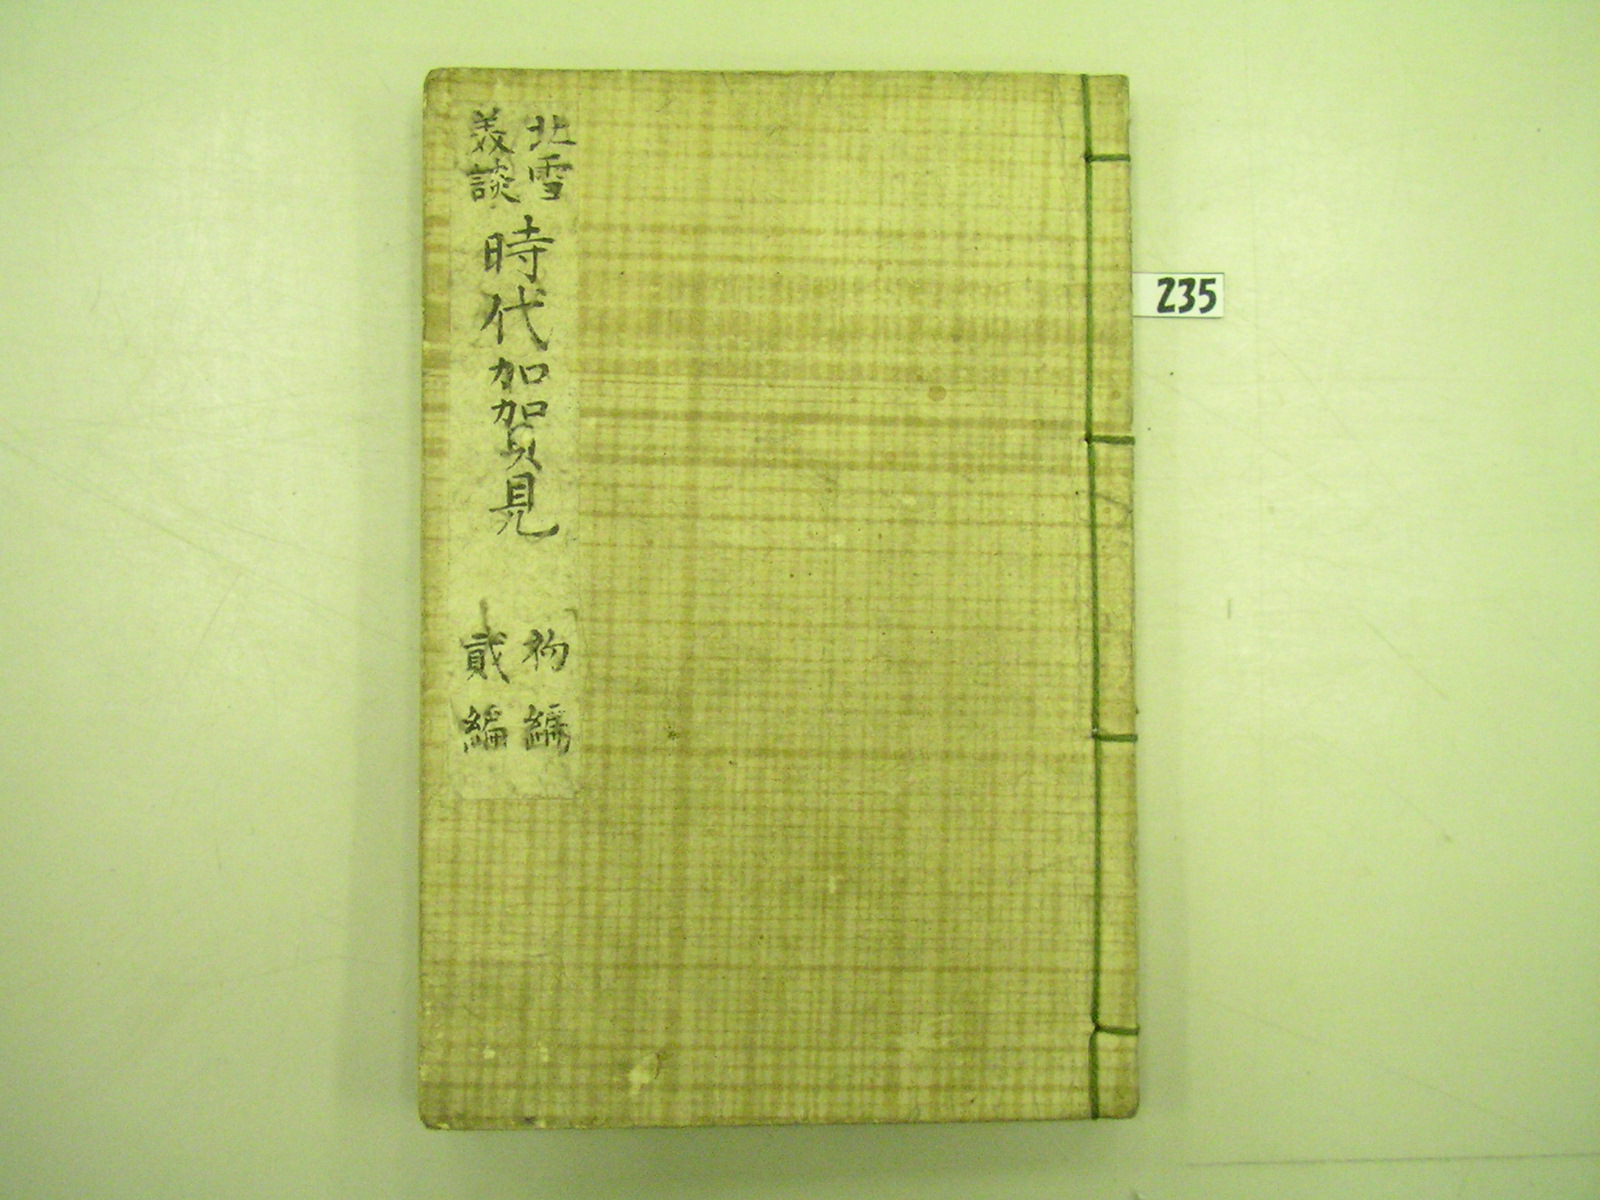 北雪
義談
時代加賀見
初編
貳編
235